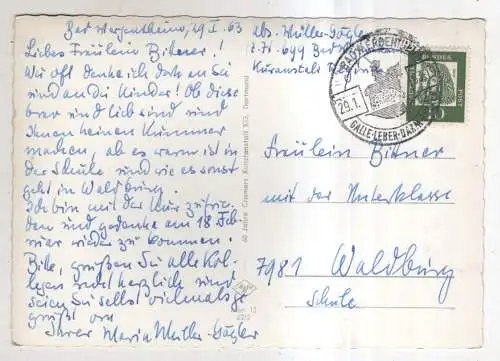 Bad Mergentheim, 29 I. 63
Liebes Fräulein Bitzner!
Wie oft denke ich daran an Sie
und an die Kinder! Ob diese
brav und lieb sind und
Ihnen keinen Kummer
machen, ob es warm ist in
der Schule und wie es sonst
geht in Waldburg.
Ich bin mit der Kur zufrie-
den und gedenke am 18 Feb-
ruar wieder zu kommen.
Bitte, grüßen Sie alle Kol-
legen recht herzlich und
seien Sie selbst vielmals ge-
grüßt von
Ihrer Maria Müller-Gögler
abs. Müller-Gögler
z. Zt. 699 Bad
Kuranstalt
BAD MERGENTHEIM
29.1.
GALLE-LEBER-DARM
BUNDES
POST
60 Jahre Cramers Kunstanstalt KG, Dortmund
Fräulein Bitzner
mit der Unterklasse
7981 Waldburg
Schule